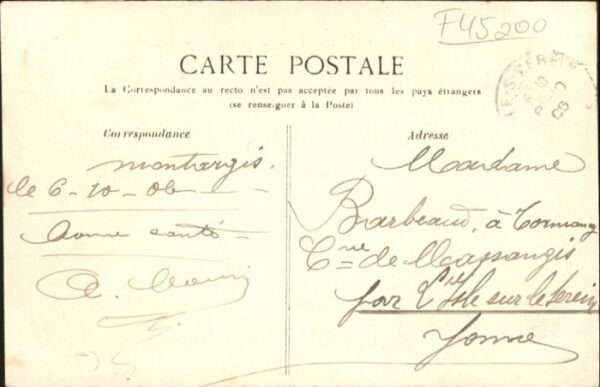 F45200
CARTE POSTALE
La Correspondance au recto n'est pas acceptée par tous les pays étrangers
(se renseigner à la Poste)
Correspondance
Adresse
Montargis.
le 6-10-06
Bonne santé
Madame
Barbeaud, à Tormancy
Cne de Massangis
par L'Isle sur le Serein
Yonne